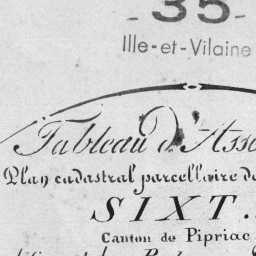 - 35 -
Ille-et-Vilaine
Tableau d'Ass
Plan cadastral parcellaire de
SIXT.
Canton de Pipriac